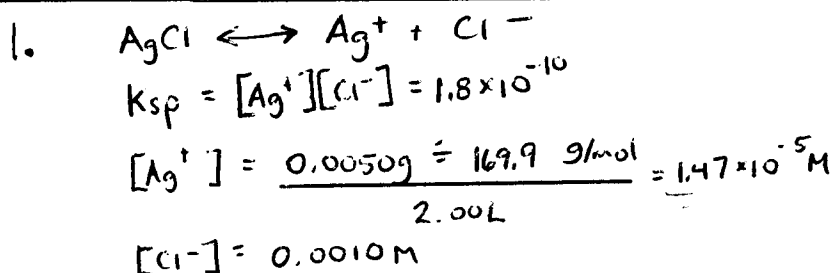 1. AgCl ⟷ Ag⁺ + Cl⁻
Ksp = [Ag⁺][Cl⁻] = 1.8×10⁻¹⁰
[Ag⁺] = 0.0050g ÷ 169.9 g/mol = 1.47×10⁻⁵M
2.00L
[Cl⁻] = 0.0010M